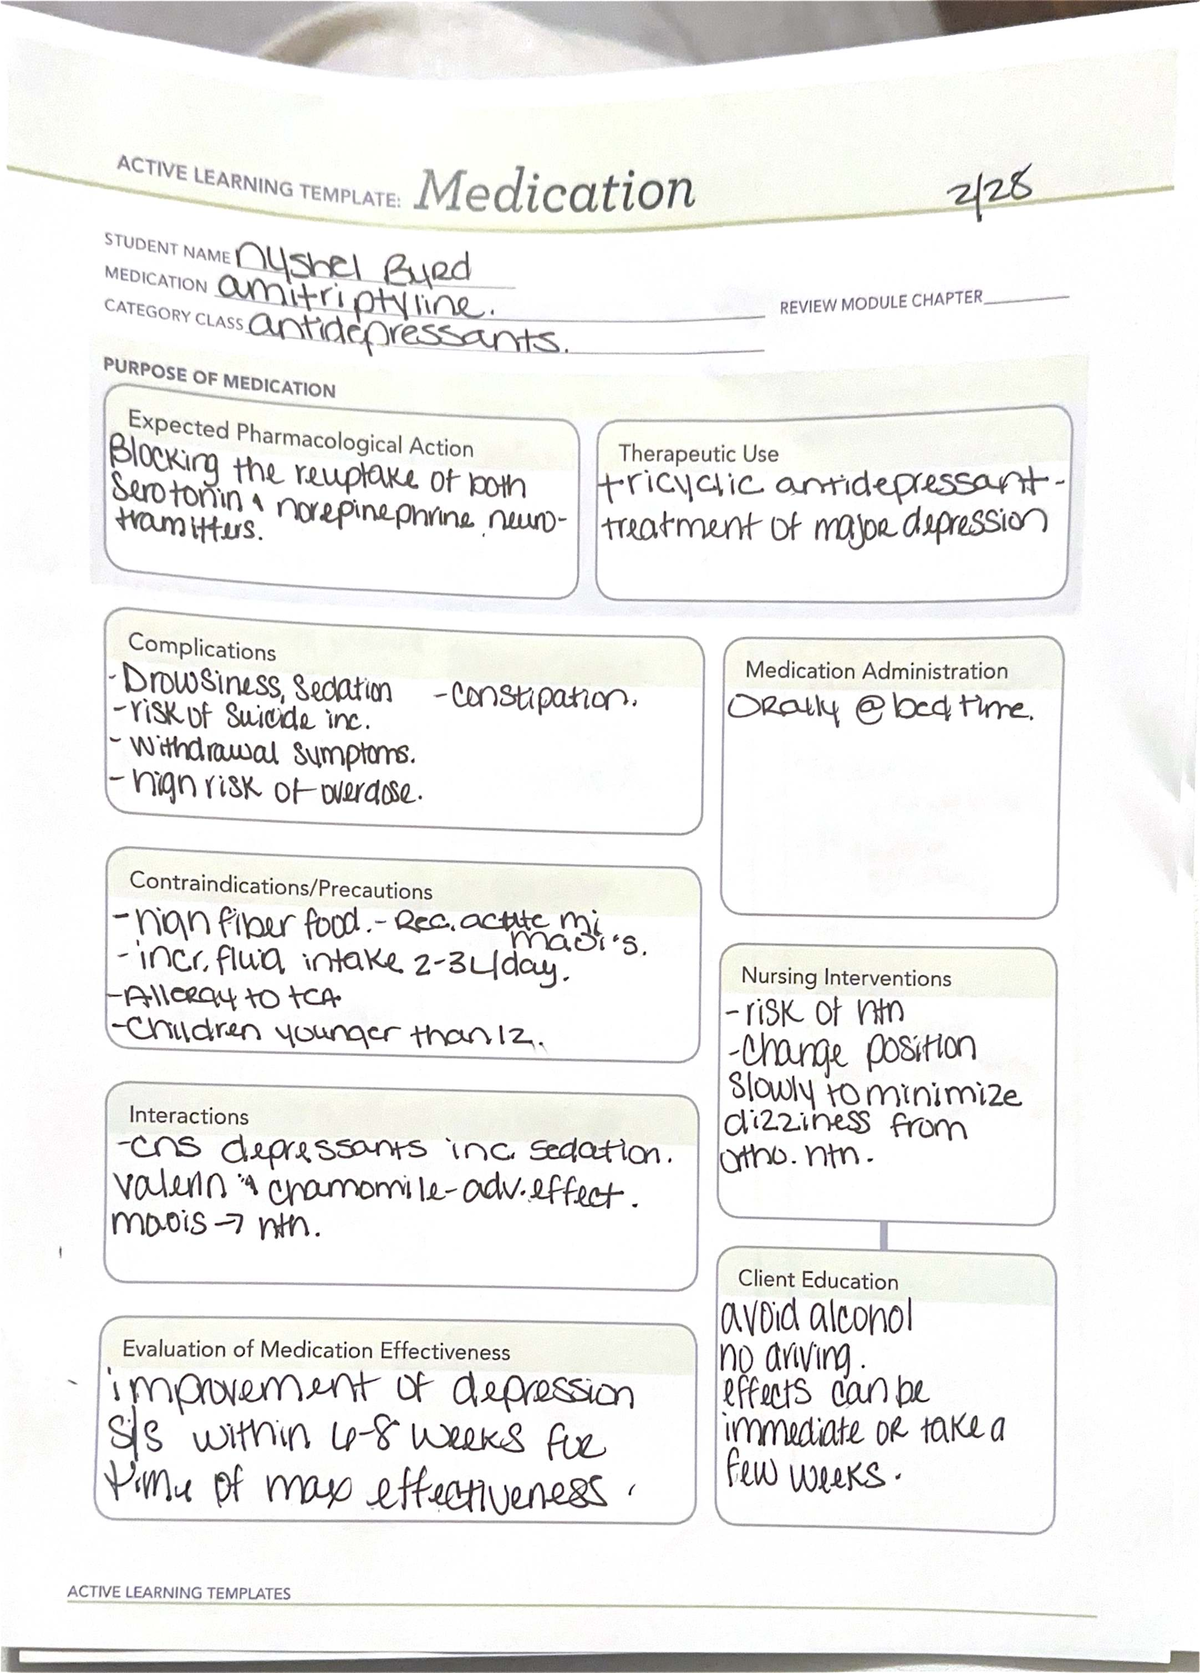 ACTIVE LEARNING TEMPLATE: Medication
2/28
STUDENT NAME Nyshel Byrd
MEDICATION amitriptyline.
REVIEW MODULE CHAPTER
CATEGORY CLASS antidepressants.
PURPOSE OF MEDICATION
Expected Pharmacological Action
Blocking the reuptake of both
Serotonin & norepinephrine neuro-
tramitters.
Therapeutic Use
tricyclic antidepressant-
treatment of major depression
Complications
-Drowsiness, Sedation -constipation.
-risk of Suicide inc.
- Withdrawal Symptoms.
- high risk of overdose.
Medication Administration
Orally @ bedtime.
Contraindications/Precautions
-high fiber food. - Rec. acute mi
maoi's.
- incr. fluid intake 2-3L/day.
-Allergy to TCA
-Children younger than 12.
Nursing Interventions
-risk of htn
-Change position
Slowly to minimize
dizziness from
ortho. htn.
Interactions
-cns depressants inc. sedation.
valerin & chamomile- adv. effect.
maois → htn.
Client Education
avoid alcohol
no driving.
effects can be
immediate or take a
few weeks.
Evaluation of Medication Effectiveness
improvement of depression
S/S within 6-8 weeks for
time of max effectiveness.
ACTIVE LEARNING TEMPLATES